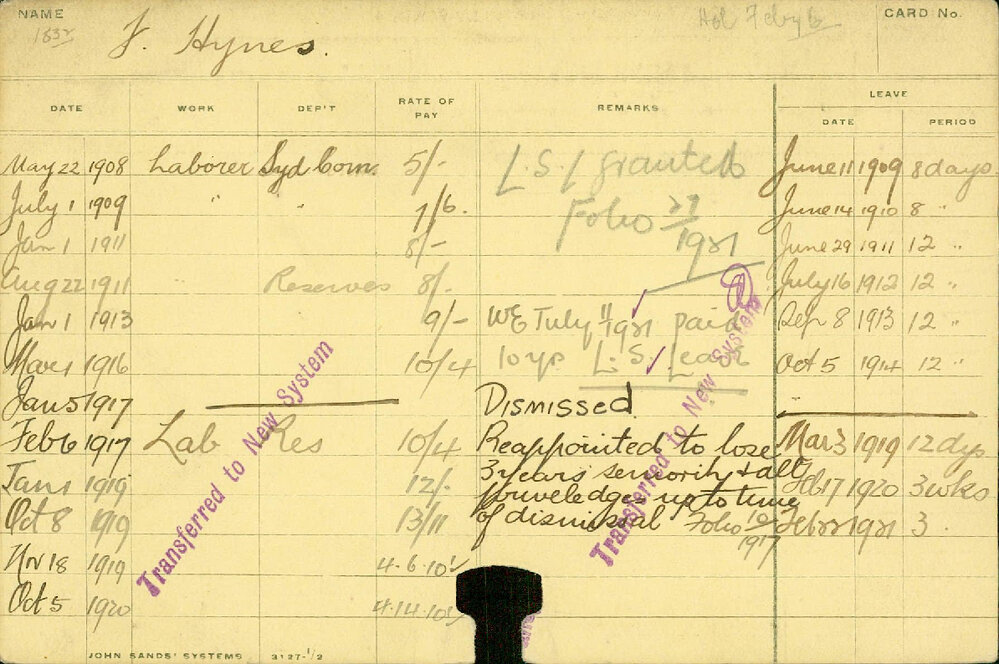 NAME
CARD No.
J. Hynes.
DATE WORK DEP'T RATE OF PAY REMARKS LEAVE
DATE PERIOD
May 22 1908 Laborer Syd Com. 5/- L.S./ granted June 11 1909 8 days
July 1 1909 " " 7/6. Folio 27/1921 June 14 1910 8 "
Jan 1 1911 8/- June 29 1911 12 "
Aug 22 1911 Reserves 8/- July 16 1912 12 "
Jan 1 1913 9/- WE July 11 1921 paid Sep 8 1913 12 "
Mar 1 1916 10/4 10 yrs L.S. Leave Oct 5 1914 12 "
Jan 5 1917 Dismissed
Feb 6 1917 Lab Res 10/4 Reappointed to lose Mar 3 1919 12 dys
Jan 1 1919 12/- 3 years seniority & all Feb 17 1920 3 wks
priveledges up to time
Oct 8 1919 13/11 of dismissal Folio 1917 Feb 22 1921 3
Nov 18 1919 4-6-10
Oct 5 1920 4-14-10
Transferred to New System
Transferred to New System
JOHN SANDS' SYSTEMS 3127-1/2